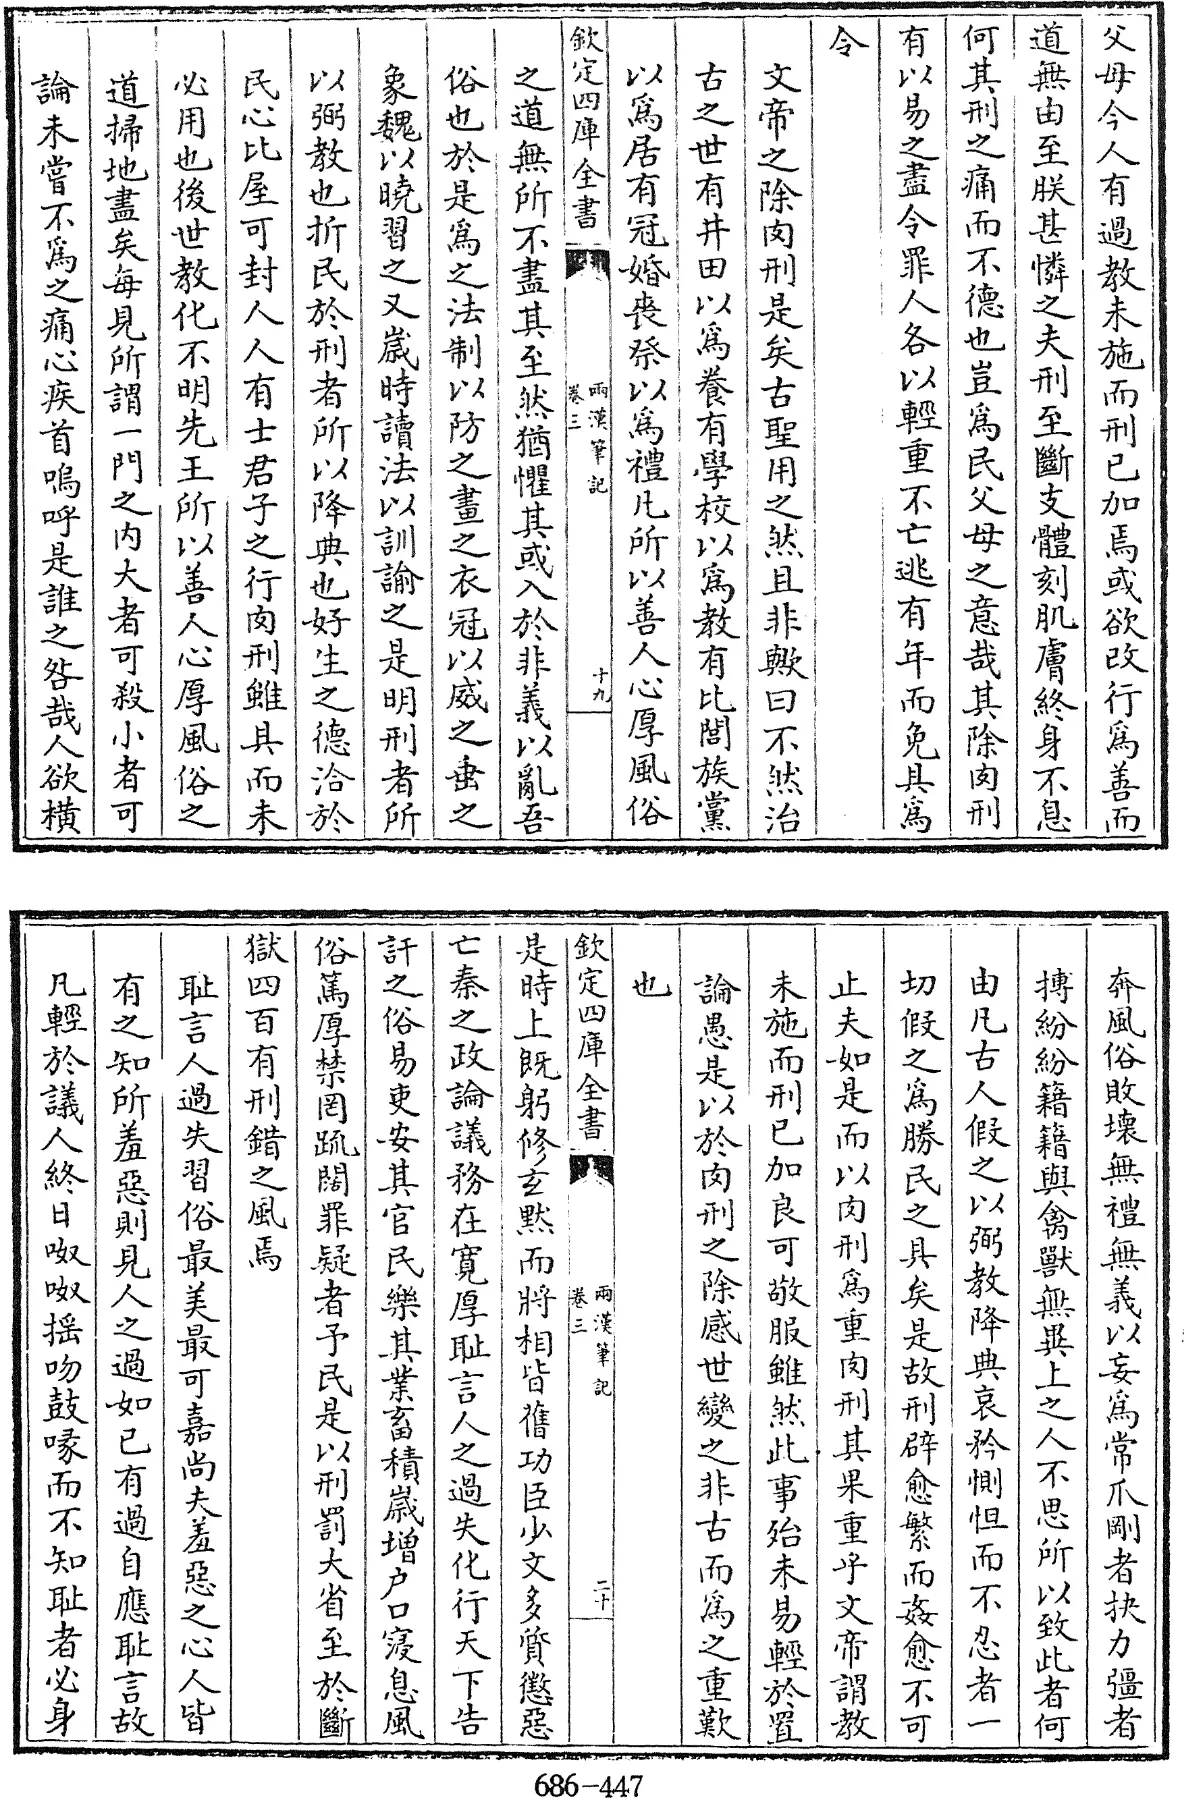 父母今人有過教未施而刑已加焉或欲改行爲善而
道無由至朕甚憐之夫刑至斷支體刻肌膚終身不息
何其刑之痛而不德也豈爲民父母之意哉其除肉刑
有以易之盡令罪人各以輕重不亡逃有年而免具爲
令
文帝之除肉刑是矣古聖用之然且非歟曰不然治
古之世有井田以爲養有學校以爲教有比閭族黨
以爲居有冠婚喪祭以爲禮凡所以善人心厚風俗
欽定四庫全書
兩漢筆記
卷三
十九
之道無所不盡其至然猶懼其或入於非義以亂吾
俗也於是爲之法制以防之畫之衣冠以威之垂之
象魏以曉習之又嵗時讀法以訓諭之是明刑者所
以弼教也折民於刑者所以降典也好生之德洽於
民心比屋可封人人有士君子之行肉刑雖具而未
必用也後世教化不明先王所以善人心厚風俗之
道掃地盡矣每見所謂一門之内大者可殺小者可
論未嘗不爲之痛心疾首嗚呼是誰之咎哉人欲橫
奔風俗敗壞無禮無義以妄爲常爪剛者抉力彊者
搏紛紛籍籍與禽獸無異上之人不思所以致此者何
由凡古人假之以弼教降典哀矜惻怛而不忍者一
切假之爲勝民之具矣是故刑辟愈繁而姦愈不可
止夫如是而以肉刑爲重肉刑其果重乎文帝謂教
未施而刑已加良可敬服雖然此事殆未易輕於置
論愚是以於肉刑之除感世變之非古而爲之重歎
也
欽定四庫全書
兩漢筆記
卷三
二十
是時上既躬修玄黙而將相皆舊功臣少文多質懲惡
亡秦之政論議務在寛厚耻言人之過失化行天下告
訐之俗易吏安其官民樂其業畜積嵗增户口寖息風
俗篤厚禁罔疏闊罪疑者予民是以刑罰大省至於斷
獄四百有刑錯之風焉
耻言人過失習俗最美最可嘉尚夫羞惡之心人皆
有之知所羞惡則見人之過如已有過自應耻言故
凡輕於議人終日呶呶揺吻鼓喙而不知耻者必身
686-447